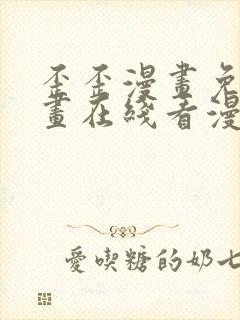 歪歪漫畫免
畫在綫看漫
愛喫糖的奶七